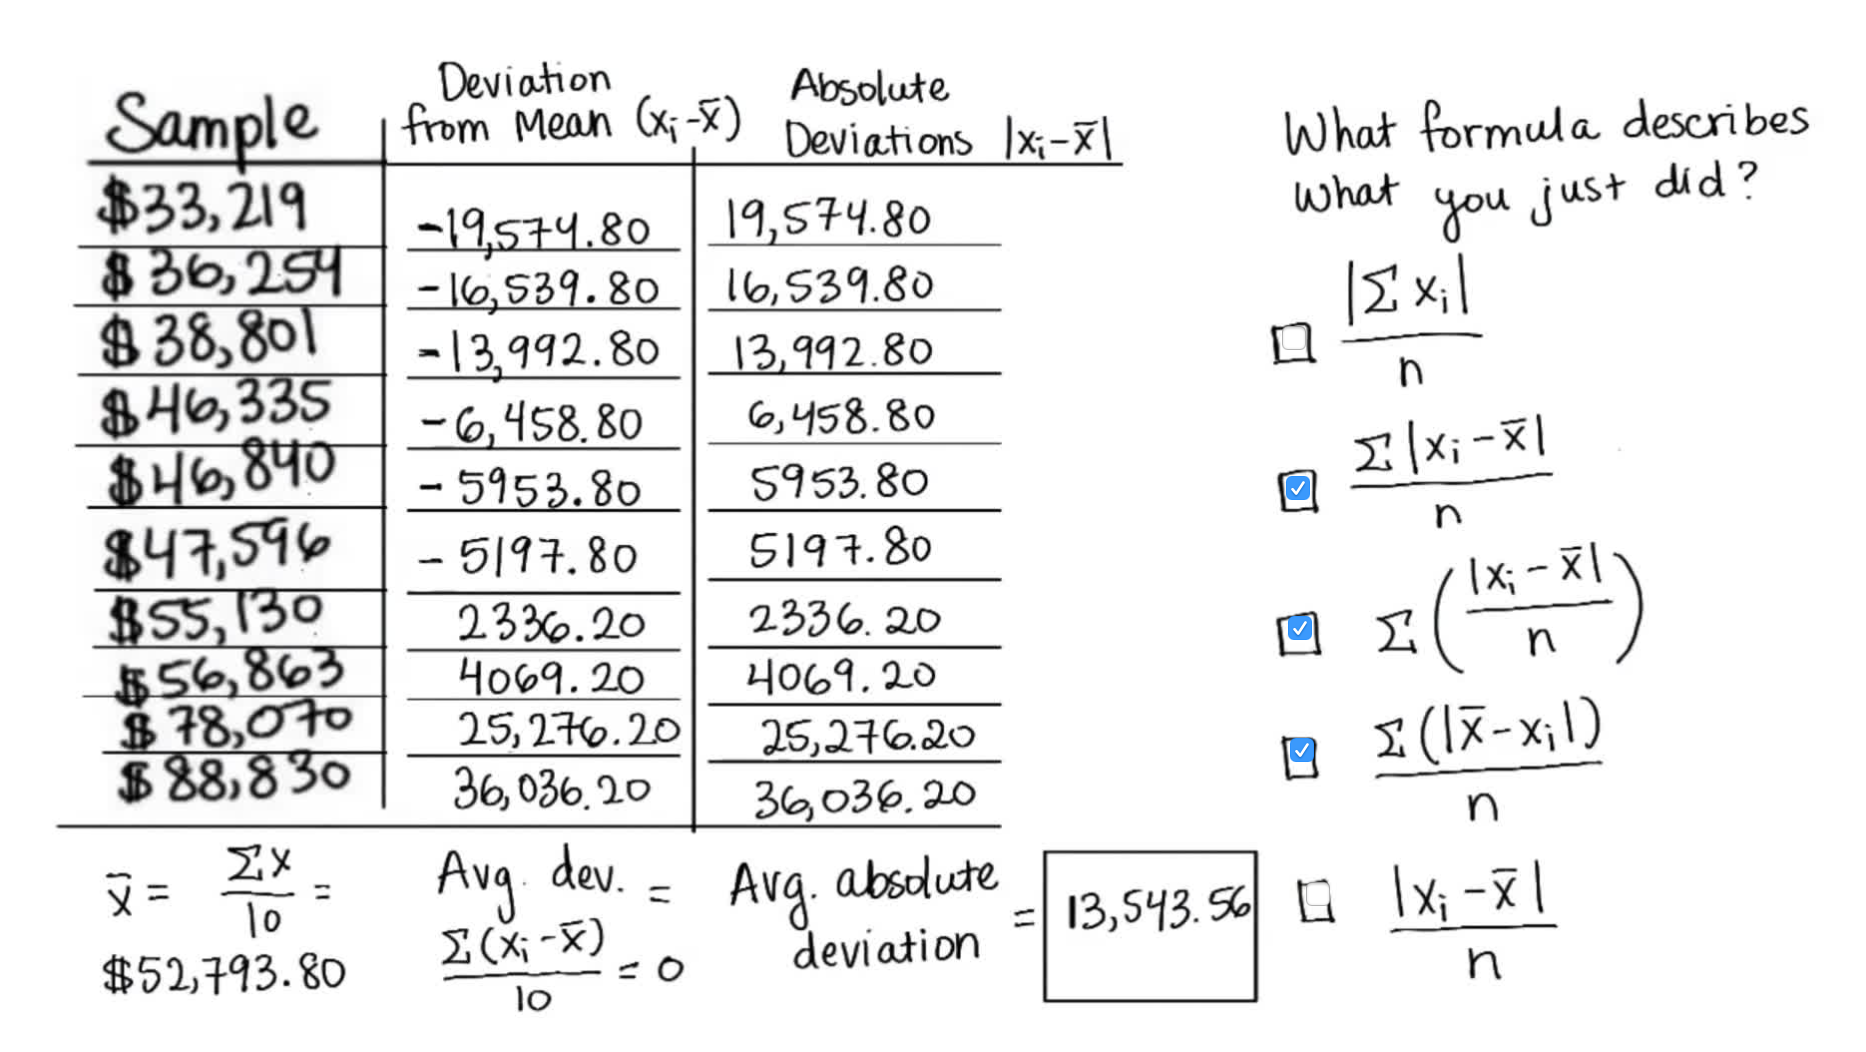 Sample
Deviation
from Mean (xᵢ-x̄)
Absolute
Deviations |xᵢ-x̄|
$33,219 -19,574.80 19,574.80
$36,254 -16,539.80 16,539.80
$38,801 -13,992.80 13,992.80
$46,335 -6,458.80 6,458.80
$46,840 -5953.80 5953.80
$47,596 -5197.80 5197.80
$55,130 2336.20 2336.20
$56,863 4069.20 4069.20
$78,070 25,276.20 25,276.20
$88,830 36,036.20 36,036.20
x̄ = Σx/10 =
$52,793.80
Avg. dev. =
Σ(xᵢ-x̄)/10 = 0
Avg. absolute
deviation = 13,543.56
What formula describes
what you just did?
|Σxᵢ|/n
Σ|xᵢ-x̄|/n
Σ(|xᵢ-x̄|/n)
Σ(|x̄-xᵢ|)/n
|xᵢ-x̄|/n